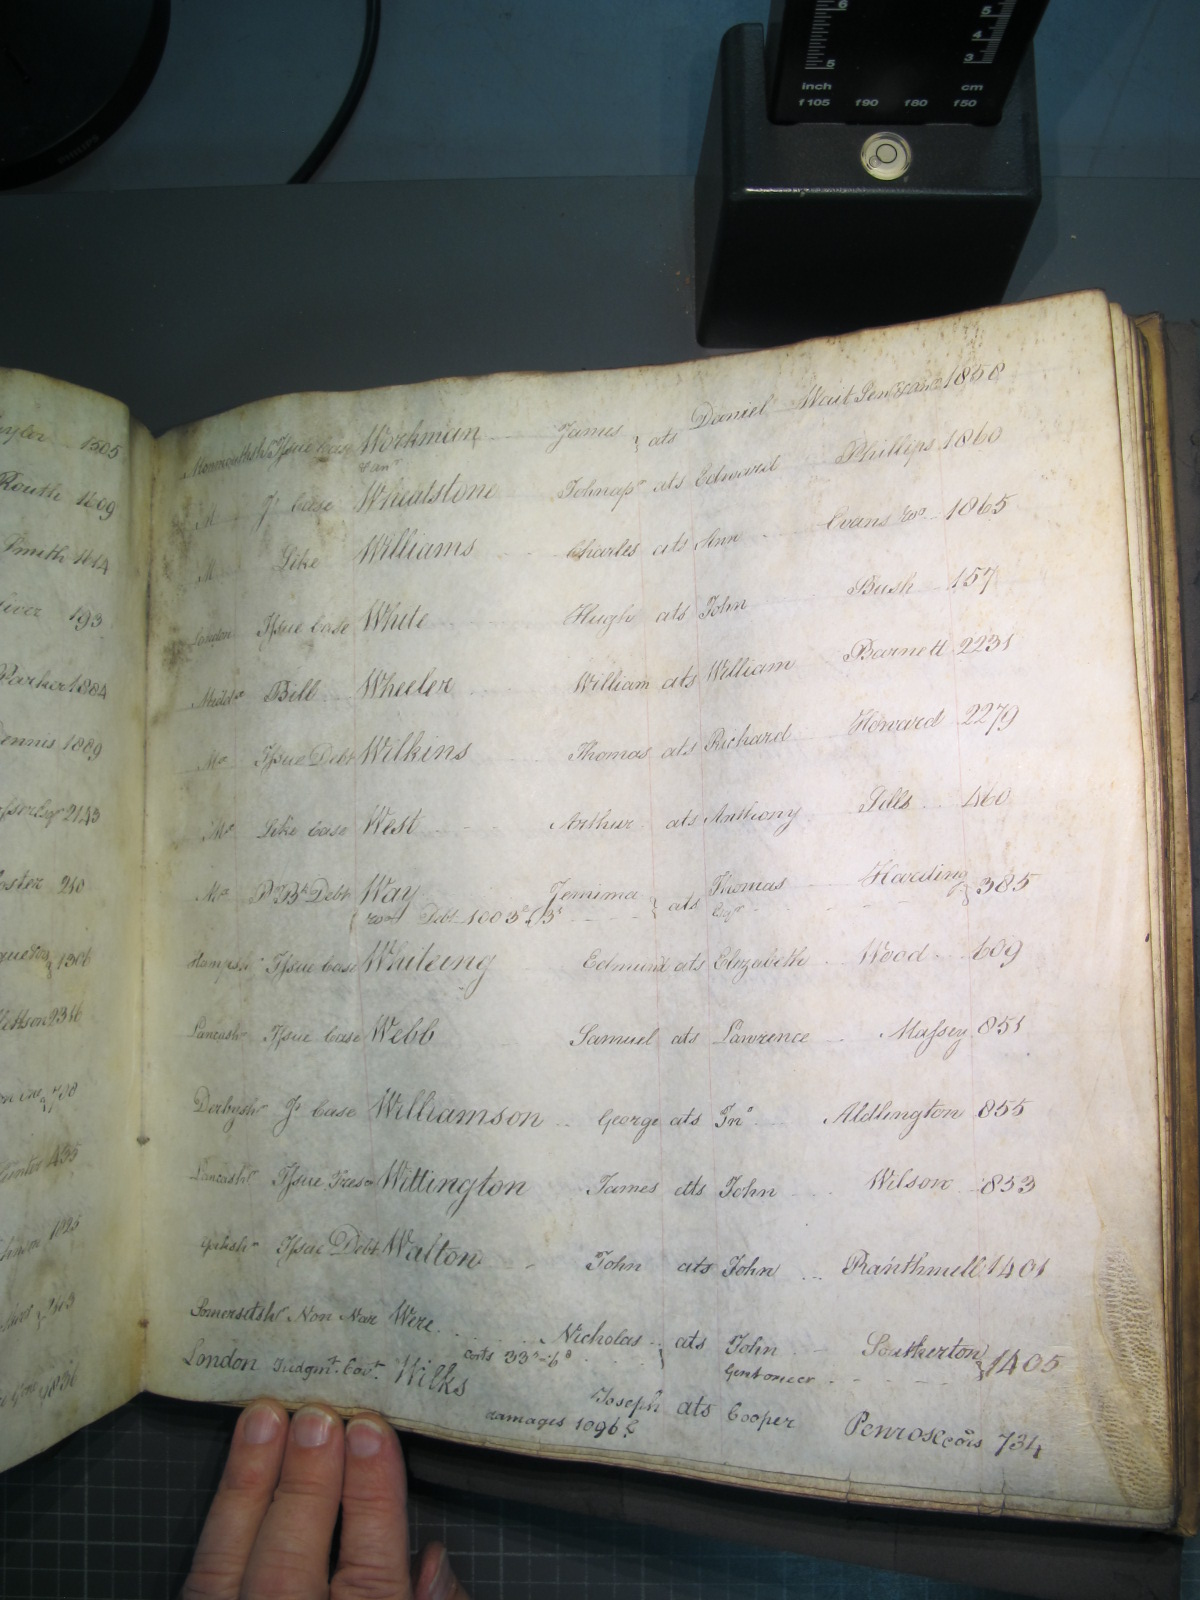 6
5
5
4
3
inch cm
f105 f90 f80 f50
PHILIPS
1505
Routh 1609
Smith 1614
193
Parker 1884
ennis 1889
2143
oster 210
1306
2316
435
1025
Monmouthsh Issue Case Workman James } ats Daniel Wait 1858
M J Case Wheatstone ats Edward Phillips 1860
M Like Williams Charles ats Ann Evans 1865
London Issue Case White Hugh ats John Bush 157
Middx Bill Wheeler William ats William Barnett 2231
Mx Issue Debt Wilkins Thomas ats Richard Howard 2279
Mx Like Case West Arthur ats Anthony Tills 460
Mx Debt Way Jemima } ats Thomas Harding } 385
Debt 1003
Hampshr Issue Case Whiteing Edmund ats Elizabeth Wood 609
Lancashr Issue Case Webb Samuel ats Lawrence Massey 851
Derbyshr J Case Williamson George ats Jno Aldlington 855
Lancashr Issue Tres Wittington James ats John Wilson 833
Issue Debt Walton John ats John Ranthmell 1401
Somersetshr Non Nar Were Nicholas } ats John Southerton } 1405
Costs 33s-6d
London Judgmt Covt Wilks Joseph ats Cooper Penrose 734
damages 1096£